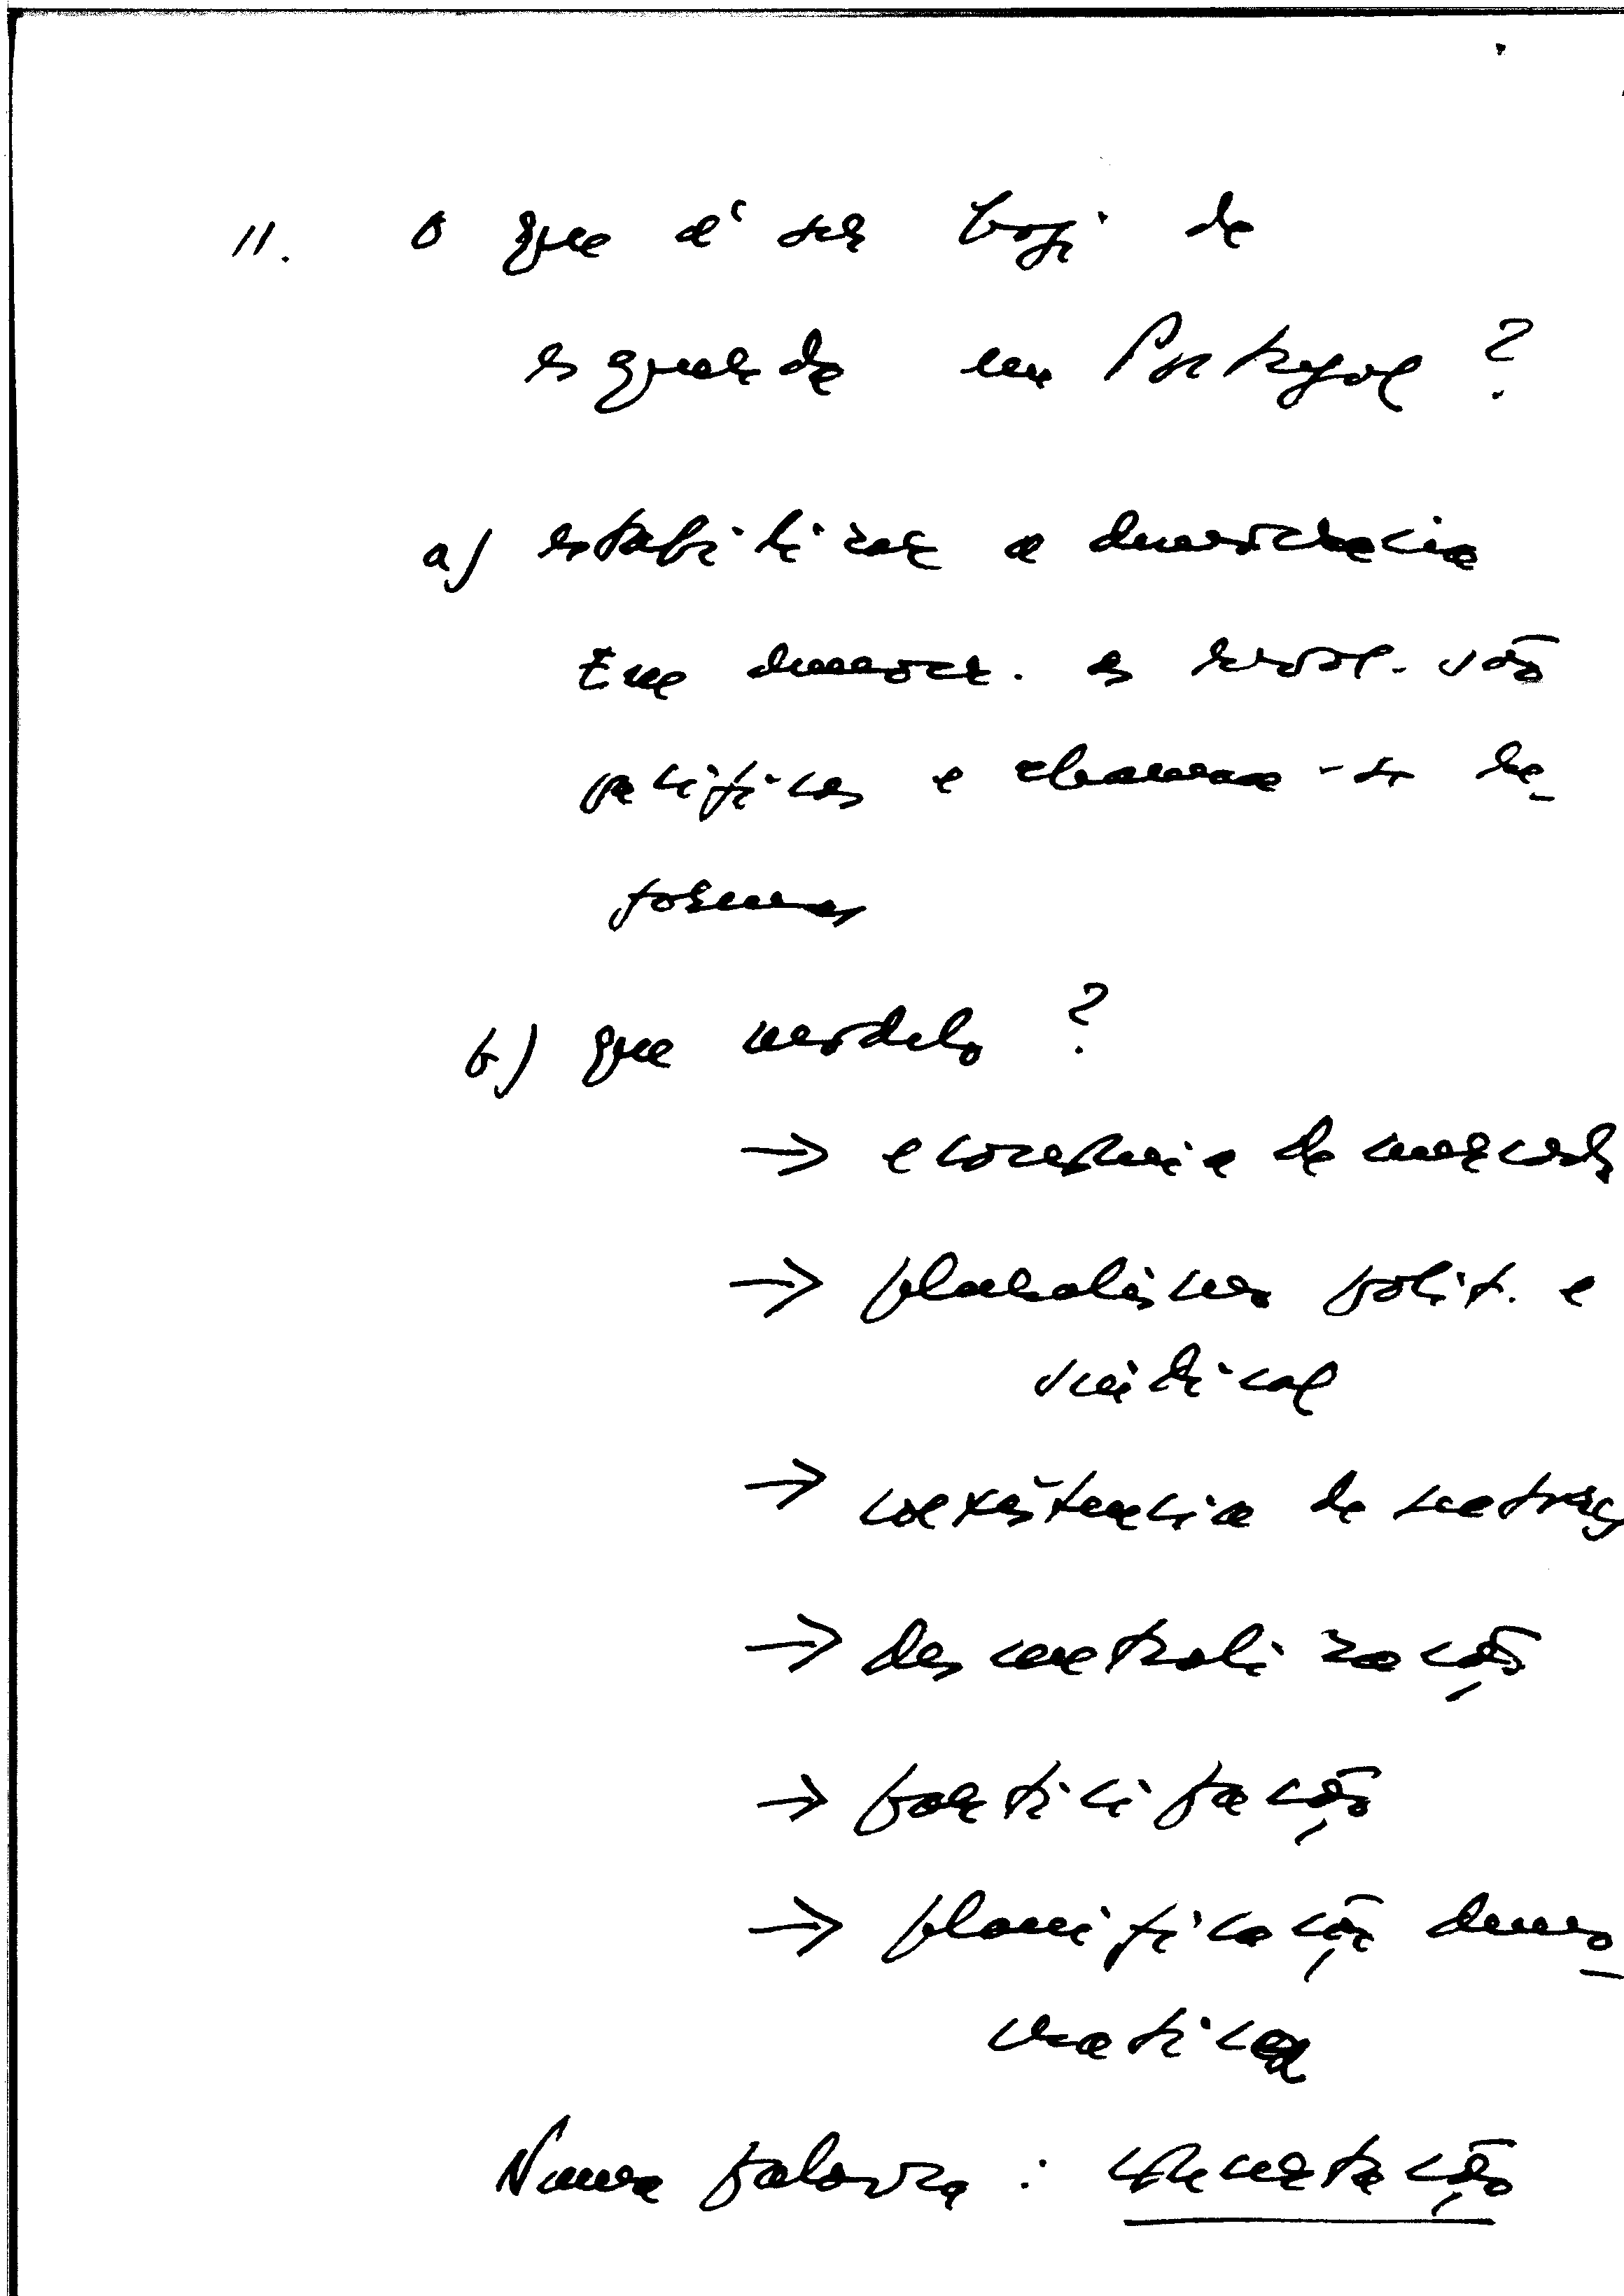 11. O que é ser hoje de
esquerda em Portugal?
a) estabilizar a democracia
Em democr. as revol. são
pacíficas e chamam-se re-
formas
b) que modelo?
→ economia de mercado
→ pluralismo polít. e
sindical
→ coexistência de sectores
→ descentralização
→ participação
→ planificação demo-
cratica
Numa palavra: concertação